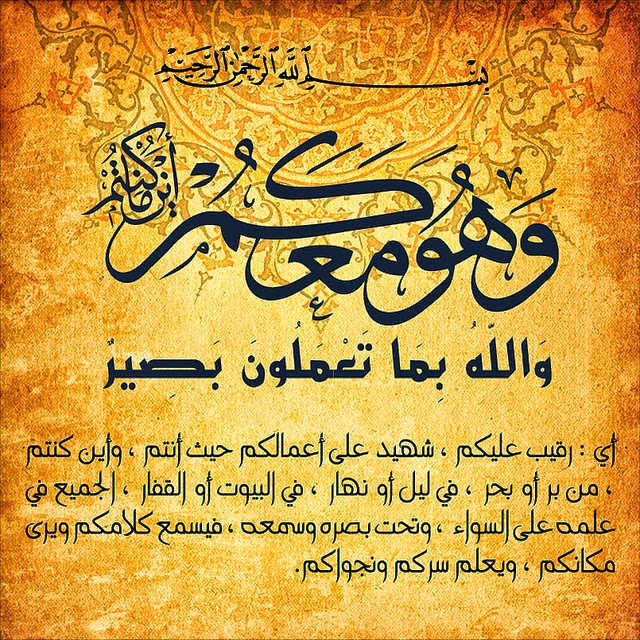 بِسْمِ ٱللَّهِ ٱلرَّحْمَٰنِ ٱلرَّحِيمِ
وَهُوَ مَعَكُمْ أَيْنَ مَا كُنْتُمْ
وَاللّٰهُ بِمَا تَعْمَلُونَ بَصِيرٌ
أي : رقيب عليكم ، شهيد على أعمالكم حيث أنتم ، وأين كنتم
، من بر أو بحر ، في ليل أو نهار ، في البيوت أو القفار ، الجميع في
علمه على السواء ، وتحت بصره وسمعه ، فيسمع كلامكم ويرى
مكانكم ، ويعلم سركم ونجواكم.